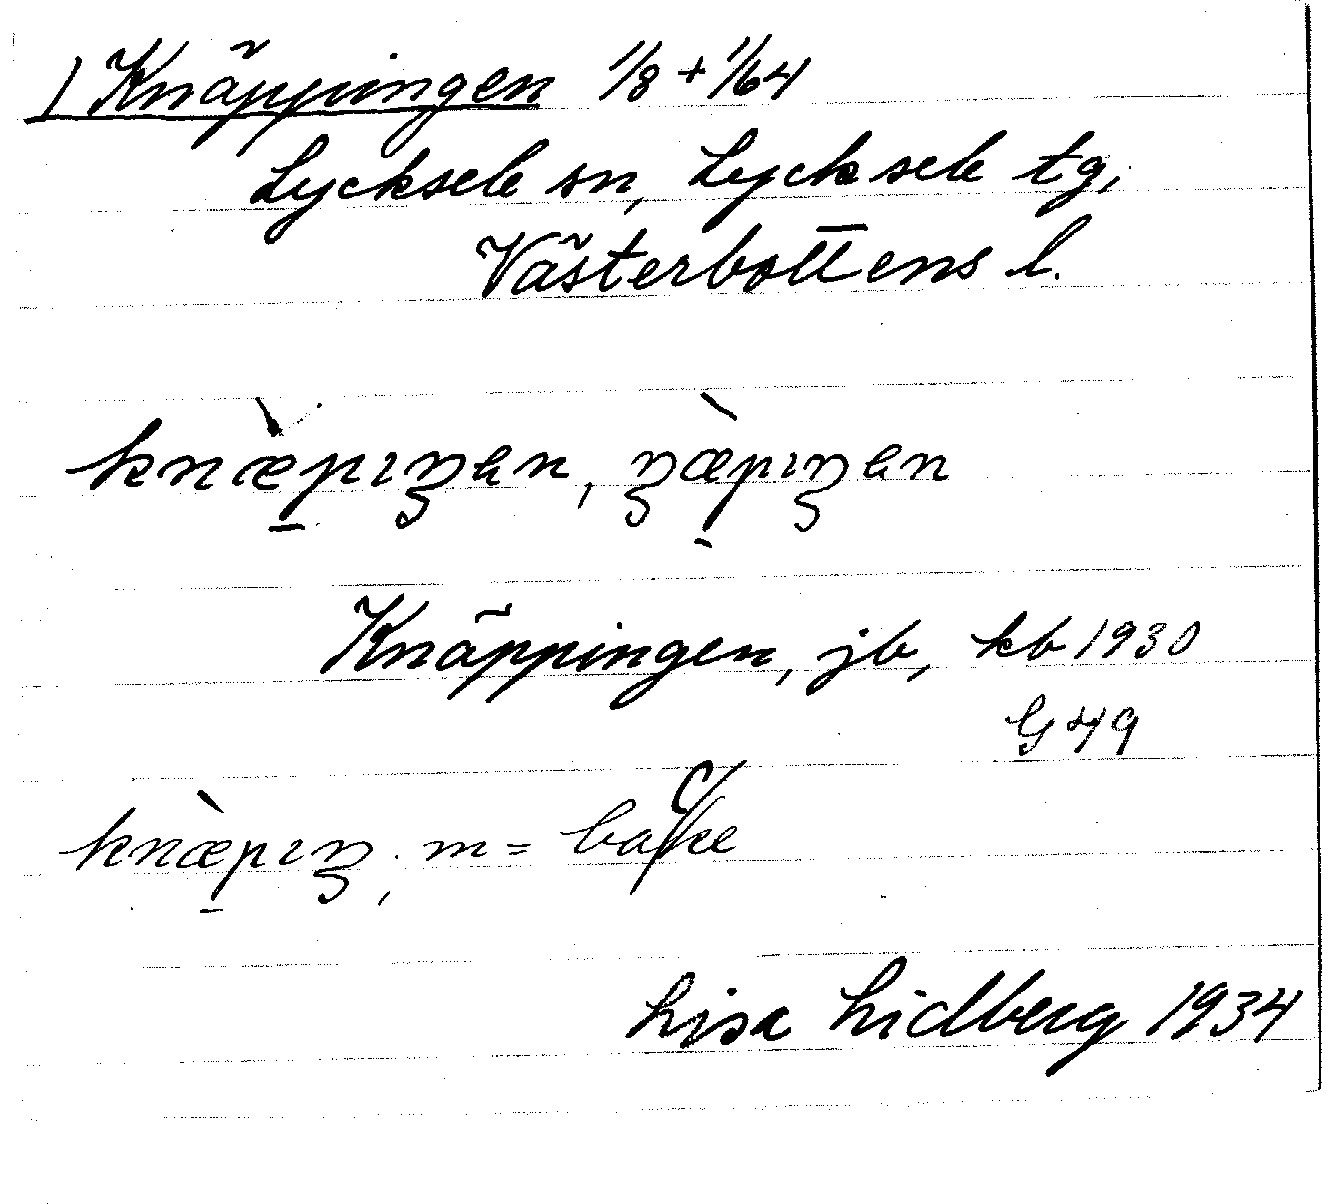 1) Knäppingen 1/8 + 1/64
Lycksele sn, Lycksele tg,
Västerbottens l.
knæ̀pıŋən, ŋæ̀pıŋən
Knäppingen, jb, kb 1930
G 49
knæ̀pıŋ, m = backe
Lisa Lidberg 1934